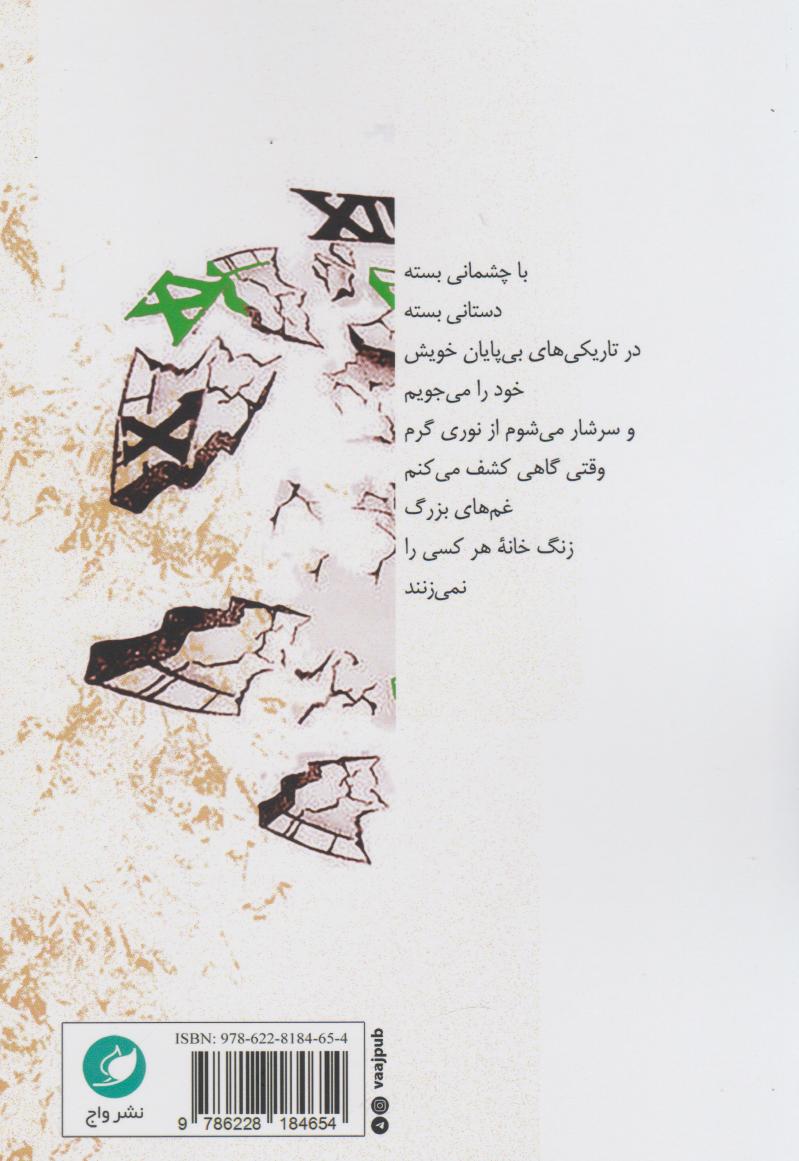 XII
XI
X
با چشمانی بسته
دستانی بسته
در تاریکی‌های بی‌پایان خویش
خود را می‌جویم
و سرشار می‌شوم از نوری گرم
وقتی گاهی کشف می‌کنم
غم‌های بزرگ
زنگ خانهٔ هر کسی را
نمی‌زنند
ISBN: 978-622-8184-65-4
9 786228 184654
نشر واج
vaajpub